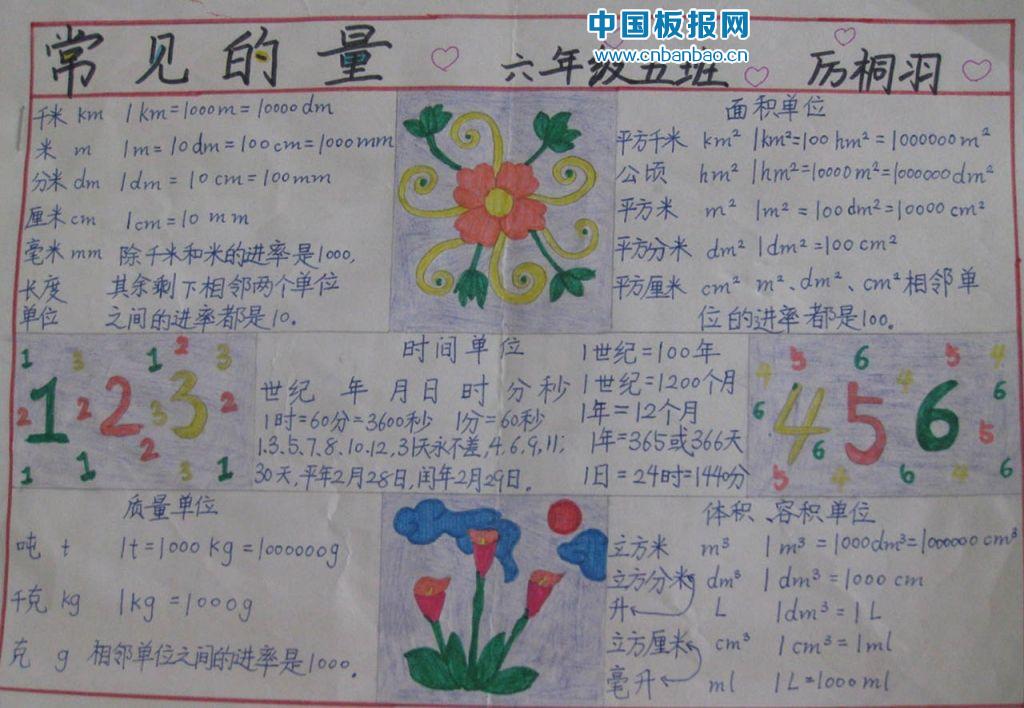 中国板报网
www.cnbanbao.cn
常见的量
六年级五班 厉桐羽
千米 km 1km=1000m=10000dm
米 m 1m=10dm=100cm=1000mm
分米 dm 1dm=10cm=100mm
厘米 cm 1cm=10mm
毫米 mm 除千米和米的进率是1000,
长度 其余剩下相邻两个单位
单位 之间的进率都是10.
面积单位
平方千米 km² 1km²=100hm²=1000000m²
公顷 hm² 1hm²=10000m²=1000000dm²
平方米 m² 1m²=100dm²=10000cm²
平方分米 dm² 1dm²=100cm²
平方厘米 cm² m²、dm²、cm²相邻单
位的进率都是100.
1 3 1 2 3
1 2 3
2 2 3 2
2
1 1 3 1
时间单位
世纪 年 月 日 时 分 秒
1时=60分=3600秒 1分=60秒
1.3.5.7.8.10.12,31天永不差,4,6,9,11;
30天,平年2月28日,闰年2月29日.
1世纪=100年
1世纪=1200个月
1年=12个月
1年=365或366天
1日=24时=1440分
5 6 5 4
4 4 6
4 5 6
6 5
6
5 4 6 4 6
质量单位
吨 t 1t=1000kg=1000000g
千克 kg 1kg=1000g
克 g 相邻单位之间的进率是1000.
体积、容积单位
立方米 m³ 1m³=1000dm³=1000000cm³
立方分米 dm³ 1dm³=1000cm
升 L 1dm³=1L
立方厘米 cm³ 1cm³=1ml
毫升 ml 1L=1000ml